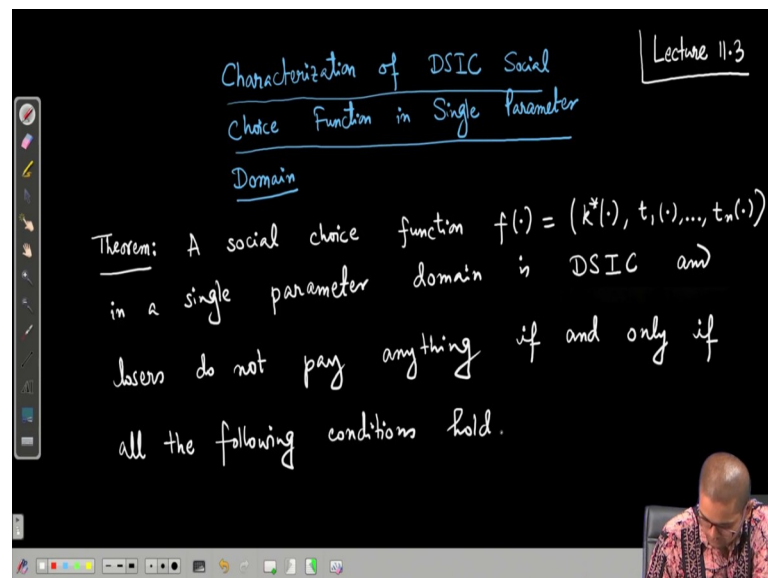 Lecture 11.3
Characterization of DSIC Social
Choice Function in Single Parameter
Domain
Theorem: A social choice function f(·) = (k*(·), t₁(·),..., tₙ(·))
in a single parameter domain is DSIC and
losers do not pay anything if and only if
all the following conditions hold.